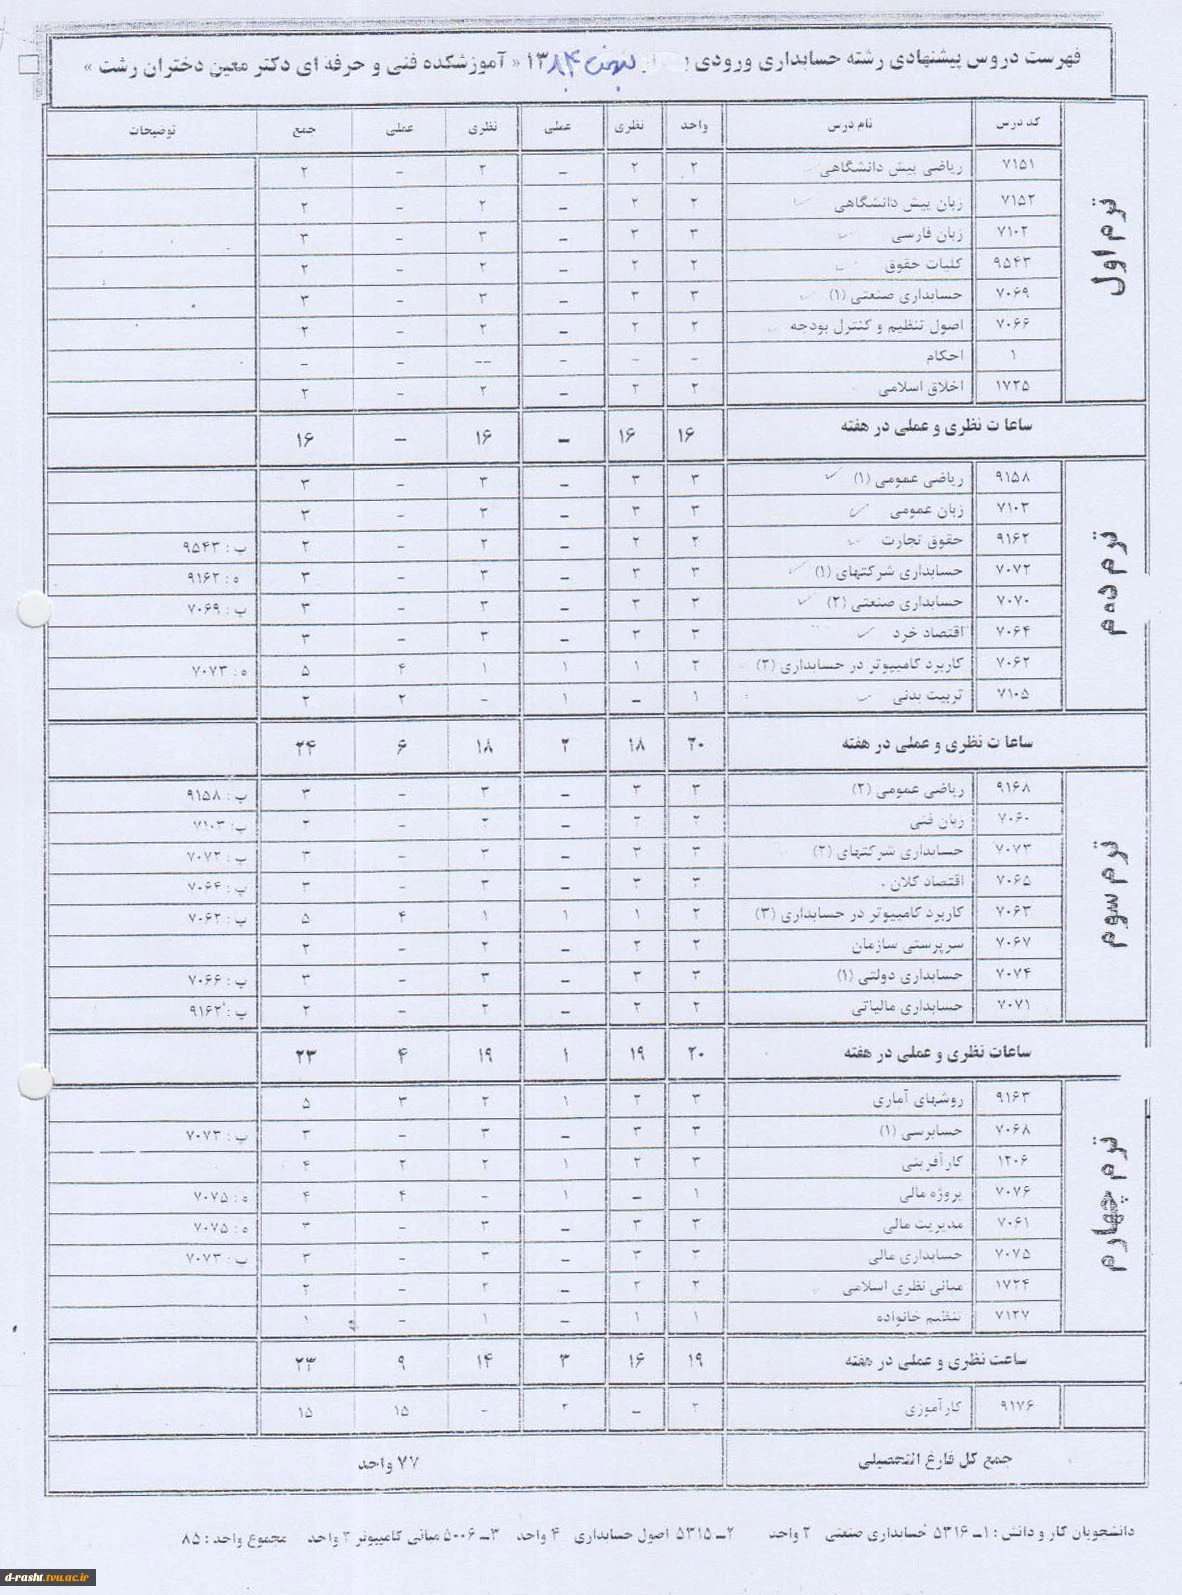 فهرست دروس پیشنهادی رشته حسابداری ورودی بهمن ۱۳۸۴ « آموزشکده فنی و حرفه ای دکتر معین دختران رشت »
کد درس نام درس واحد نظری عملی نظری عملی جمع توضیحات
ترم اول
۷۱۵۱ ریاضی پیش دانشگاهی ۲ ۲ – ۲ – ۲
۷۱۵۲ زبان پیش دانشگاهی ۲ ۲ – ۲ – ۲
۷۱۰۲ زبان فارسی ۳ ۳ – ۳ – ۳
۹۵۴۳ کلیات حقوق ۲ ۲ – ۲ – ۲
۷۰۶۹ حسابداری صنعتی (۱) ۳ ۳ – ۳ – ۳
۷۰۶۶ اصول تنظیم و کنترل بودجه ۲ ۲ – ۲ – ۲
۱ احکام – – – -- – –
۱۷۲۵ اخلاق اسلامی ۲ ۲ – ۲ – ۲
ساعات نظری و عملی در هفته ۱۶ ۱۶ – ۱۶ – ۱۶
ترم دوم
۹۱۵۸ ریاضی عمومی (۱) ۳ ۳ – ۳ – ۳
۷۱۰۳ زبان عمومی ۳ ۳ – ۳ – ۳
۹۱۶۲ حقوق تجارت ۲ ۲ – ۲ – ۲ پ : ۹۵۴۳
۷۰۷۲ حسابداری شرکتهای (۱) ۳ ۳ – ۳ – ۳ ه : ۹۱۶۲
۷۰۷۰ حسابداری صنعتی (۲) ۳ ۳ – ۳ – ۳ پ : ۷۰۶۹
۷۰۶۴ اقتصاد خرد ۳ ۳ – ۳ – ۳
۷۰۶۲ کاربرد کامپیوتر در حسابداری (۲) ۲ ۱ ۱ ۱ ۴ ۵ ه : ۷۰۷۳
۷۱۰۵ تربیت بدنی ۱ – ۱ – ۲ ۲
ساعات نظری و عملی در هفته ۲۰ ۱۸ ۲ ۱۸ ۶ ۲۴
ترم سوم
۹۱۶۸ ریاضی عمومی (۲) ۳ ۳ – ۳ – ۳ پ : ۹۱۵۸
۷۰۶۰ زبان فنی ۲ ۲ – ۲ – ۲ پ : ۷۱۰۳
۷۰۷۳ حسابداری شرکتهای (۲) ۳ ۳ – ۳ – ۳ پ : ۷۰۷۲
۷۰۶۵ اقتصاد کلان ۳ ۳ – ۳ – ۳ پ : ۷۰۶۴
۷۰۶۳ کاربرد کامپیوتر در حسابداری (۳) ۲ ۱ ۱ ۱ ۴ ۵ پ : ۷۰۶۲
۷۰۶۷ سرپرستی سازمان ۲ ۲ – ۲ – ۲
۷۰۷۴ حسابداری دولتی (۱) ۳ ۳ – ۳ – ۳ پ : ۷۰۶۶
۷۰۷۱ حسابداری مالیاتی ۲ ۲ – ۲ – ۲ پ : ۹۱۶۲
ساعات نظری و عملی در هفته ۲۰ ۱۹ ۱ ۱۹ ۴ ۲۳
ترم چهارم
۹۱۶۳ روشهای آماری ۳ ۲ ۱ ۲ ۳ ۵
۷۰۶۸ حسابرسی (۱) ۳ ۳ – ۳ – ۳ پ : ۷۰۷۳
۱۲۰۶ کارآفرینی ۳ ۲ ۱ ۲ ۲ ۴
۷۰۷۶ پروژه مالی ۱ – ۱ – ۴ ۴ ه : ۷۰۷۵
۷۰۶۱ مدیریت مالی ۳ ۳ – ۳ – ۳ ه : ۷۰۷۵
۷۰۷۵ حسابداری مالی ۳ ۳ – ۳ – ۳ پ : ۷۰۷۳
۱۷۲۴ مبانی نظری اسلامی ۲ ۲ – ۲ – ۲
۷۱۲۷ تنظیم خانواده ۱ ۱ – ۱ – ۱
ساعت نظری و عملی در هفته ۱۹ ۱۶ ۳ ۱۴ ۹ ۲۳
۹۱۷۶ کارآموزی ۲ – ۲ – ۱۵ ۱۵
جمع کل فارغ التحصیلی ۷۷ واحد
دانشجویان کار و دانش : ۱ـ ۵۳۱۶ حسابداری صنعتی ۲ واحد ۲ـ ۵۳۱۵ اصول حسابداری ۴ واحد ۳ـ ۵۰۰۶ مبانی کامپیوتر ۲ واحد مجموع واحد : ۸۵
d-rasht.tvu.ac.ir